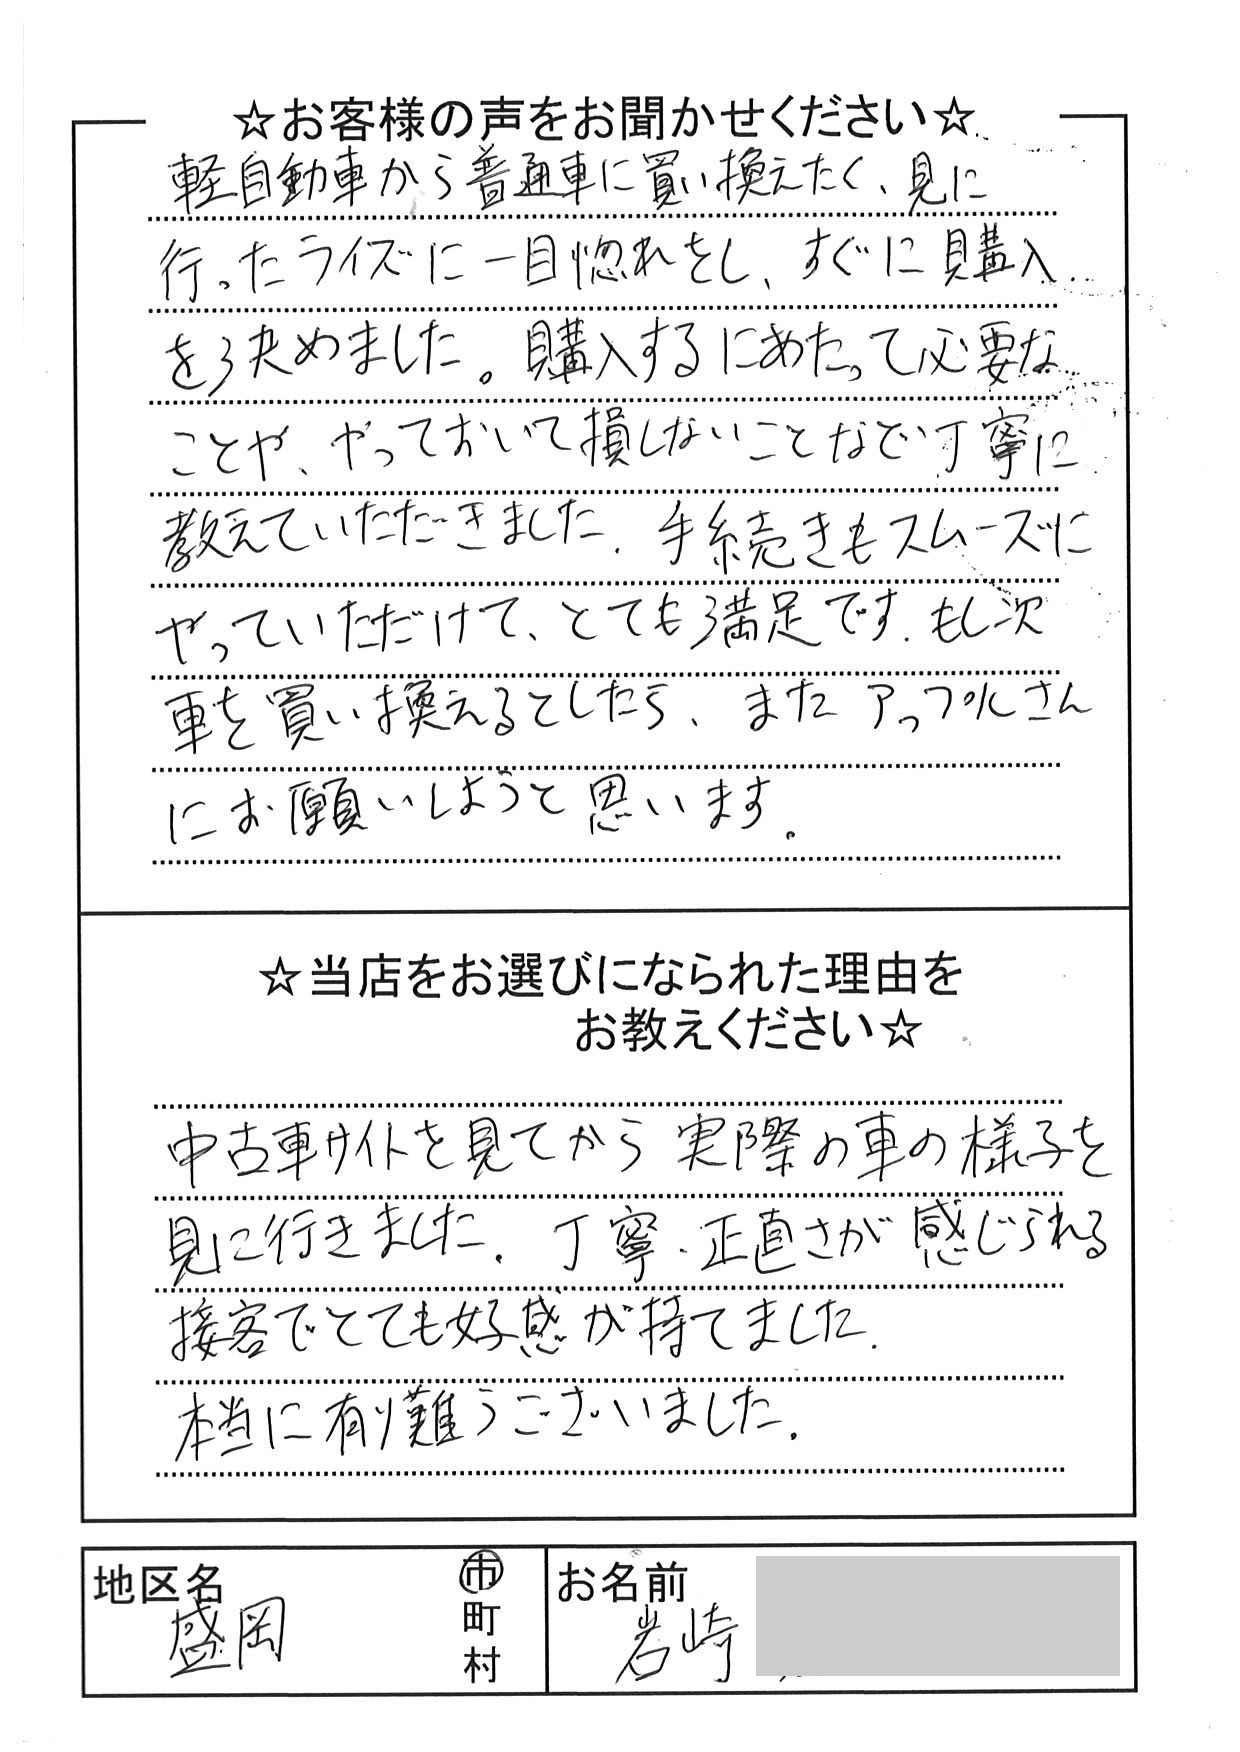 ☆お客様の声をお聞かせください☆
軽自動車から普通車に買い換えたく、見に
行ったライズに一目惚れをし、すぐに購入
を決めました。購入するにあたって必要な
ことや、やっておいて損しないことなど丁寧に
教えていただきました。手続きもスムーズに
やっていただけて、とても満足です。もし次
車を買い換えるとしたら、またアップルさん
にお願いしようと思います。
☆当店をお選びになられた理由を
お教えください☆
中古車サイトを見てから実際の車の様子を
見に行きました。丁寧・正直さが感じられる
接客でとても好感が持てました。
本当に有り難うございました。
地区名
盛岡
市
町
村
お名前
岩崎